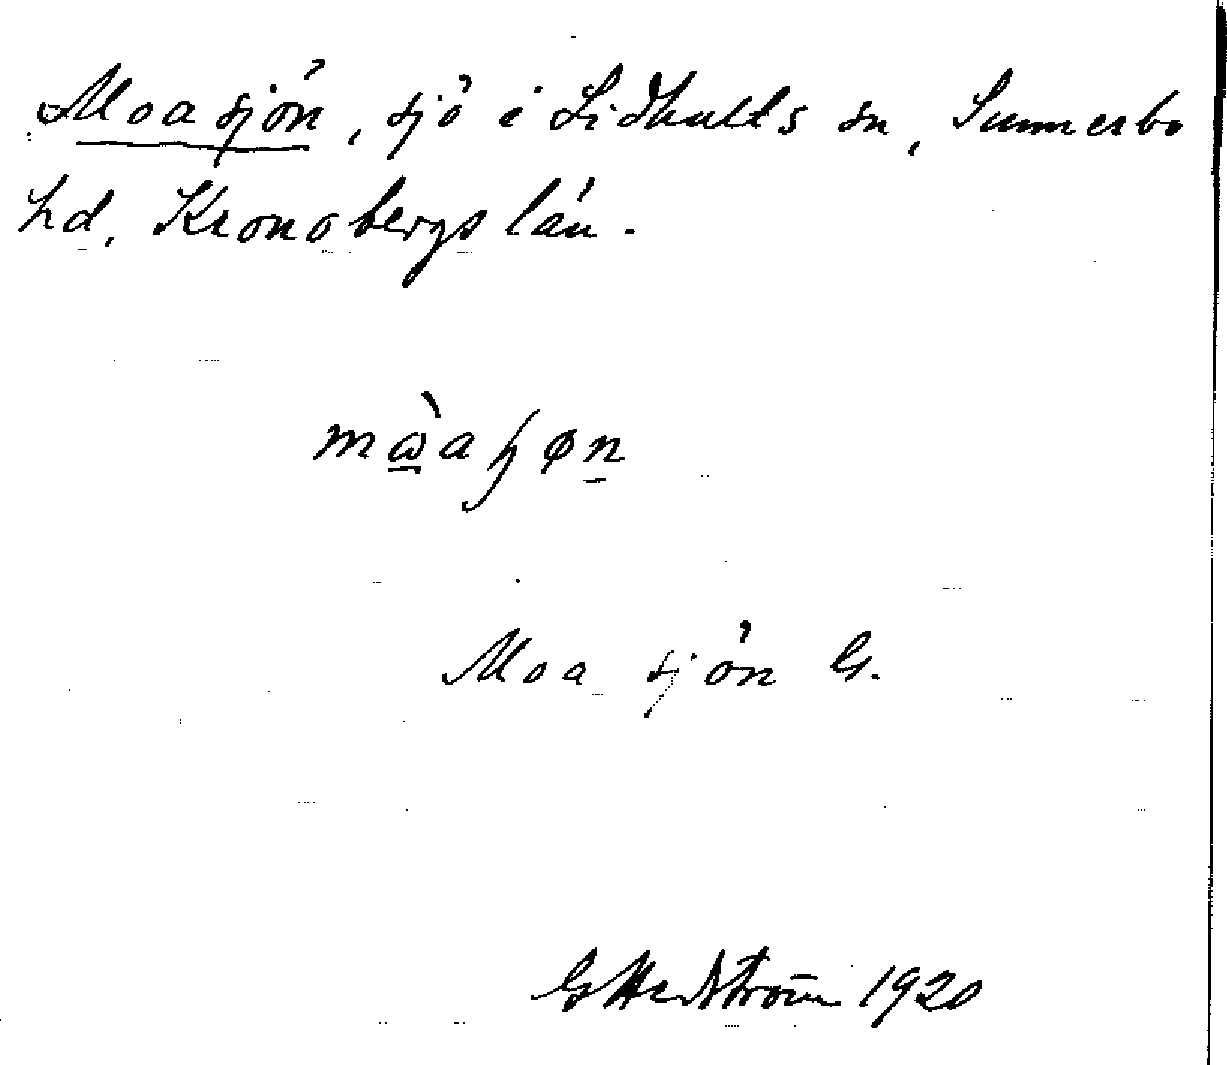 Moasjön, sjö i Lidhults sn, Sunnerbo
hd, Kronobergs län.
Moa sjön G.
G Hedström 1920